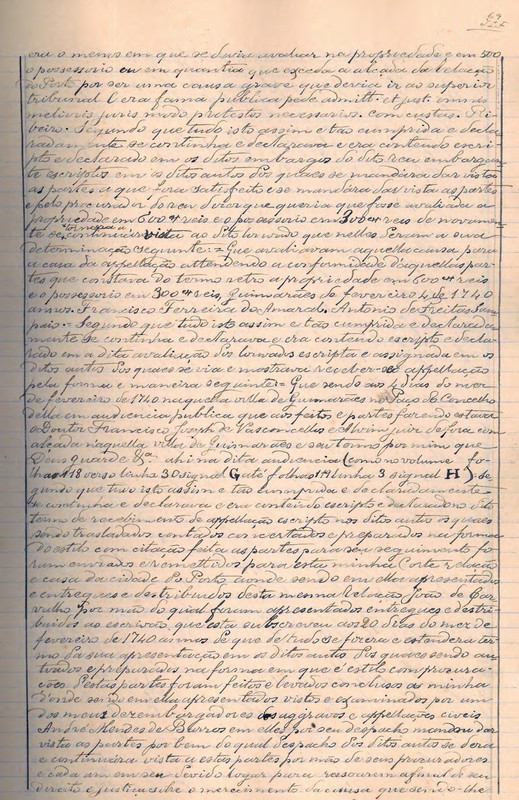 era o menos em que se devia avaliar na propriedade e em 500
o possessorio ou em quantia que exceda a alçada da Relação
do Porto por ser uma causa grave que devia ir ao superior
tribunal E era fama publica pede admitt. et just. omni
melioris juris modo protestos necessarios. com custas. Ri-
beiro. Segundo que tudo isto assim e tão cumprida e decla-
radamente se continha e declarava e era contendo escri-
pto e declarado em os ditos embargos do dito reu embargan-
te escriptos em os ditos autos dos quaes se mandára dar vista
as partes a que fora satisfeito e se mandára dar vista as partes
e pelo procurador do reu dizer que queria que fosse avaliada a
propriedade em 600 reis e o possessorio em 300 reis de novamen-
te se continuára vista ao dito louvado que nelles deram a sua
tornára a
determinação seguinte: = Que avaliavam aquella causa para
a casa da appellação attendendo a conformidade d'aquellas par-
tes que constava do termo retro a propriedade em 600 reis
e o possessorio em 300 reis, Guimarães de fevereiro 4 de 1740
annos. Francisco Ferreira do Amaral. Antonio de Freitas Sam-
paio. Segundo que tudo isto assim e tão cumprida e declarada-
mente se continha e declarava e era contendo escripto e decla-
rado em a dita avaliação dos louvados escripta e assignada em os
ditos autos dos quaes se via e mostrava receber-se appellação
pela forma e maneira seguinte: Que sendo aos 4 dias do mez
de fevereiro de 1740 naquella villa de Guimarães no Paço do Concelho
della em audiencia publica que aos feitos e partes fazendo estava
o Doutor Francisco Joseph de Vasconcellos e Alvim juiz de fora com
alçada naquella villa de Guimarães e seu termo por mim que
Deus guarde &ª ahi na dita audiencia (como no volume fo-
lhas 118 verso linha 30 signal G até folhas 141 linha 3 signal H) Se-
gundo que tudo isto assim e tão cumprida e declaradamente
se continha e declarava e era contendo escripto e declarado no dito
termo de recebimento de appellação escripto nos ditos autos os quaes
sendo trasladados contados concertados e preparados na forma
do estilo com citação feita as partes para seu seguimento fo-
ram enviados e remettidos para esta minha Corte Relação
e casa da cidade do Porto aonde sendo em ella apresentados
e entregues e destribuidos desta mesma Relação, João de Car-
valho por mão do qual foram apresentados entregues e destri-
buidos ao escrivão que esta subscreveu aos 20 dias do mez de
fevereiro de 1740 annos de que de tudo se fizera e estendera ter-
mo da sua apresentação em os ditos autos dos quaes sendo au-
tuados e preparados na forma em que é estilo com procura-
cões destas partes foram feitos e levados conclusos a minha
d'onde sendo em ella apresentados vistos e examinados por um
dos meus dezembargadores dos aggravos e appellações civeis
André Mendes de Barros em elles por seu despacho mandou dar
vista as partes por bem do qual despacho dos ditos autos se dera
e continuára vista a estas partes por mão de seus procuradores
e cada um em seu devido logar para ressoarem a final de seu
direito e justiça sobre o merecimento da causa que sendo-lhe